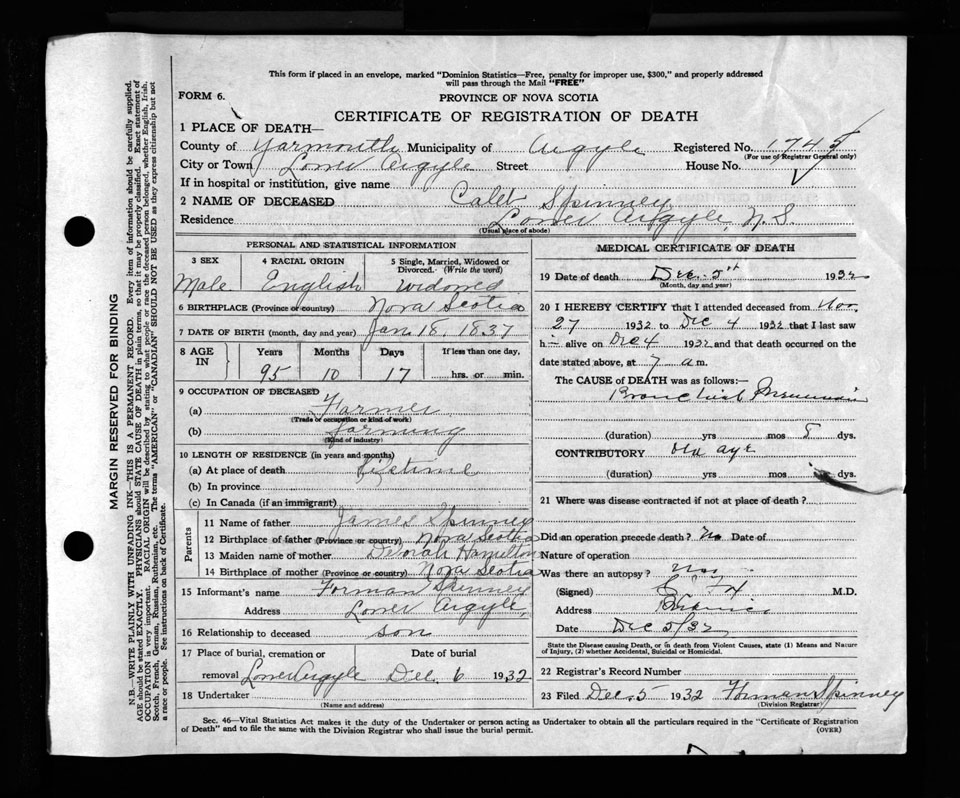 This form if placed in an envelope, marked "Dominion Statistics—Free, penalty for improper use, $300," and properly addressed
will pass through the Mail "FREE"
FORM 6.
PROVINCE OF NOVA SCOTIA
CERTIFICATE OF REGISTRATION OF DEATH
1 PLACE OF DEATH—
County of Yarmouth Municipality of Argyle Registered No. 1745
(For use of Registrar General only)
City or Town Lower Argyle Street House No.
If in hospital or institution, give name
2 NAME OF DECEASED Caleb Spinney
Residence Lower Argyle, N.S.
(Usual place of abode)
PERSONAL AND STATISTICAL INFORMATION
3 SEX 4 RACIAL ORIGIN 5 Single, Married, Widowed or
Divorced. (Write the word)
Male English Widowed
6 BIRTHPLACE (Province or country) Nova Scotia
7 DATE OF BIRTH (month, day and year) Jan. 18, 1837
8 AGE IN Years Months Days If less than one day,
95 10 17 hrs. or min.
9 OCCUPATION OF DECEASED
(a) Farmer
(Trade or occupation or kind of work)
(b) farming
(Kind of industry)
10 LENGTH OF RESIDENCE (in years and months)
(a) At place of death lifetime
(b) In province
(c) In Canada (if an immigrant)
Parents
11 Name of father James Spinney
12 Birthplace of father (Province or country) Nova Scotia
13 Maiden name of mother Deborah Hamilton
14 Birthplace of mother (Province or country) Nova Scotia
15 Informant's name Forman Spinney
Address Lower Argyle,
16 Relationship to deceased son
17 Place of burial, cremation or Date of burial
removal Lower Argyle Dec. 6 1932
18 Undertaker
(Name and address)
MEDICAL CERTIFICATE OF DEATH
19 Date of death Dec. 5th 1932
(Month, day and year)
20 I HEREBY CERTIFY that I attended deceased from Nov.
27 1932 to Dec 4 1932 that I last saw
h alive on Dec 4 1932 and that death occurred on the
date stated above, at 7 a m.
The CAUSE of DEATH was as follows:—
Bronchial Pneumonia
(duration) yrs mos 8 dys.
CONTRIBUTORY Old age
(duration) yrs mos dys.
21 Where was disease contracted if not at place of death?
Did an operation precede death? No Date of
Nature of operation
Was there an autopsy? No
(Signed) M.D.
Address
Date Dec 5/32
State the Disease causing Death, or in death from Violent Causes, state (1) Means and Nature
of Injury, (2) whether Accidental, Suicidal or Homicidal.
22 Registrar's Record Number
23 Filed Dec. 5 1932 Forman Spinney
(Division Registrar)
Sec. 46—Vital Statistics Act makes it the duty of the Undertaker or person acting as Undertaker to obtain all the particulars required in the "Certificate of Registration
of Death" and to file the same with the Division Registrar who shall issue the burial permit.
(OVER)
MARGIN RESERVED FOR BINDING
N.B. WRITE PLAINLY WITH UNFADING INK—THIS IS A PERMANENT RECORD. Every item of information should be carefully supplied.
AGE should be stated EXACTLY. PHYSICIANS should STATE CAUSE OF DEATH in plain terms, so that it may be properly classified. Exact statement of
OCCUPATION is very important. RACIAL ORIGIN will be described by stating to what people or race the deceased person belonged, whether English, Irish,
Scotch, French, German, Russian, Ruthenian, etc. The terms "AMERICAN" or "CANADIAN" SHOULD NOT BE USED as they express citizenship but not
a race or people. See instructions on back of Certificate.